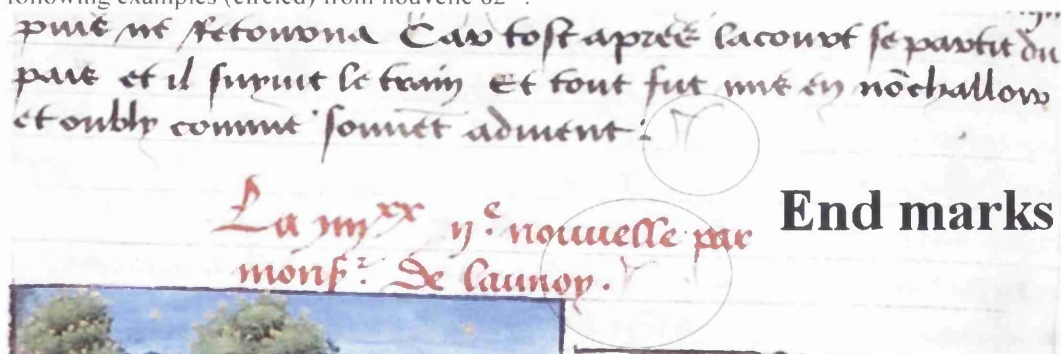 following examples (circled) from nouvelle 82
puis ne Retourna Car tost aprés lacourt se partit du
pais et il suyuit le train Et tout fut mis en nõchalloir
et oubly comme souuẽt aduient
La iiiixx ij.e nouuelle par
monsr. De launoy.
End marks